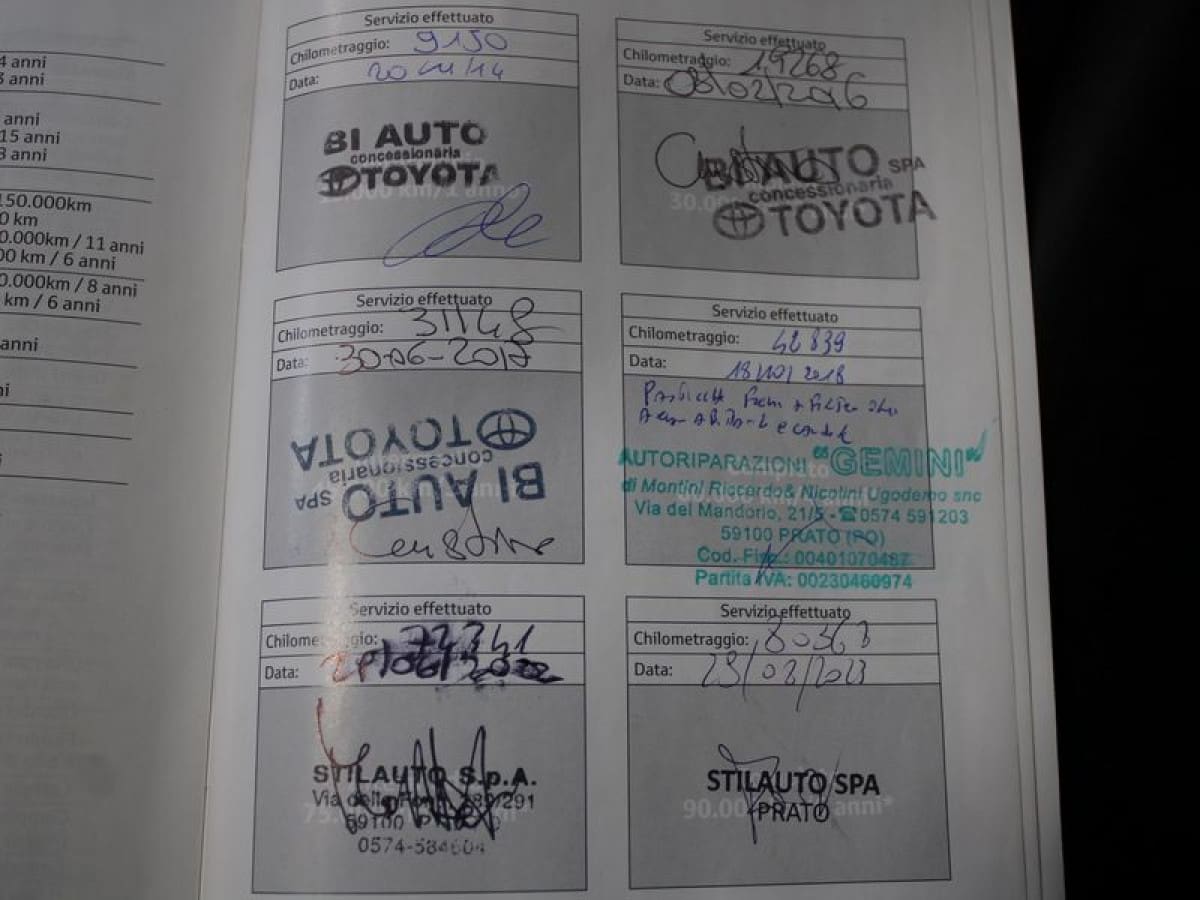 4 anni
3 anni
anni
15 anni
3 anni
150.000km
0 km
0.000km / 11 anni
00 km / 6 anni
0.000km / 8 anni
km / 6 anni
anni
ni
Servizio effettuato
Chilometraggio: 9150
Data: 20/11/14
BI AUTO
concessionaria
TOYOTA
Servizio effettuato
Chilometraggio: 19268
Data: 08/02/2016
30.00
BI AUTO SPA
concessionaria
TOYOTA
Servizio effettuato
Chilometraggio: 31148
Data: 30-06-2017
BI AUTO SPA
concessionaria
TOYOTA
Servizio effettuato
Chilometraggio: 42839
Data: 18/10/2018
AUTORIPARAZIONI "GEMINI"
di Montini Riccardo & Nicolini Ugodemo snc
Via del Mandorlo, 21/5 - ☎ 0574 591203
59100 PRATO (PO)
Cod. Fisc.: 00401070487
Partita IVA: 00230460974
Servizio effettuato
Chilometraggio: 72341
Data: /06/2022
STILAUTO S.p.A.
Via delle 289/291
59100 PRATO
0574-584604
Servizio effettuato
Chilometraggio: 80363
Data: 23/02/2023
STILAUTO SPA
PRATO
90.00 anni*